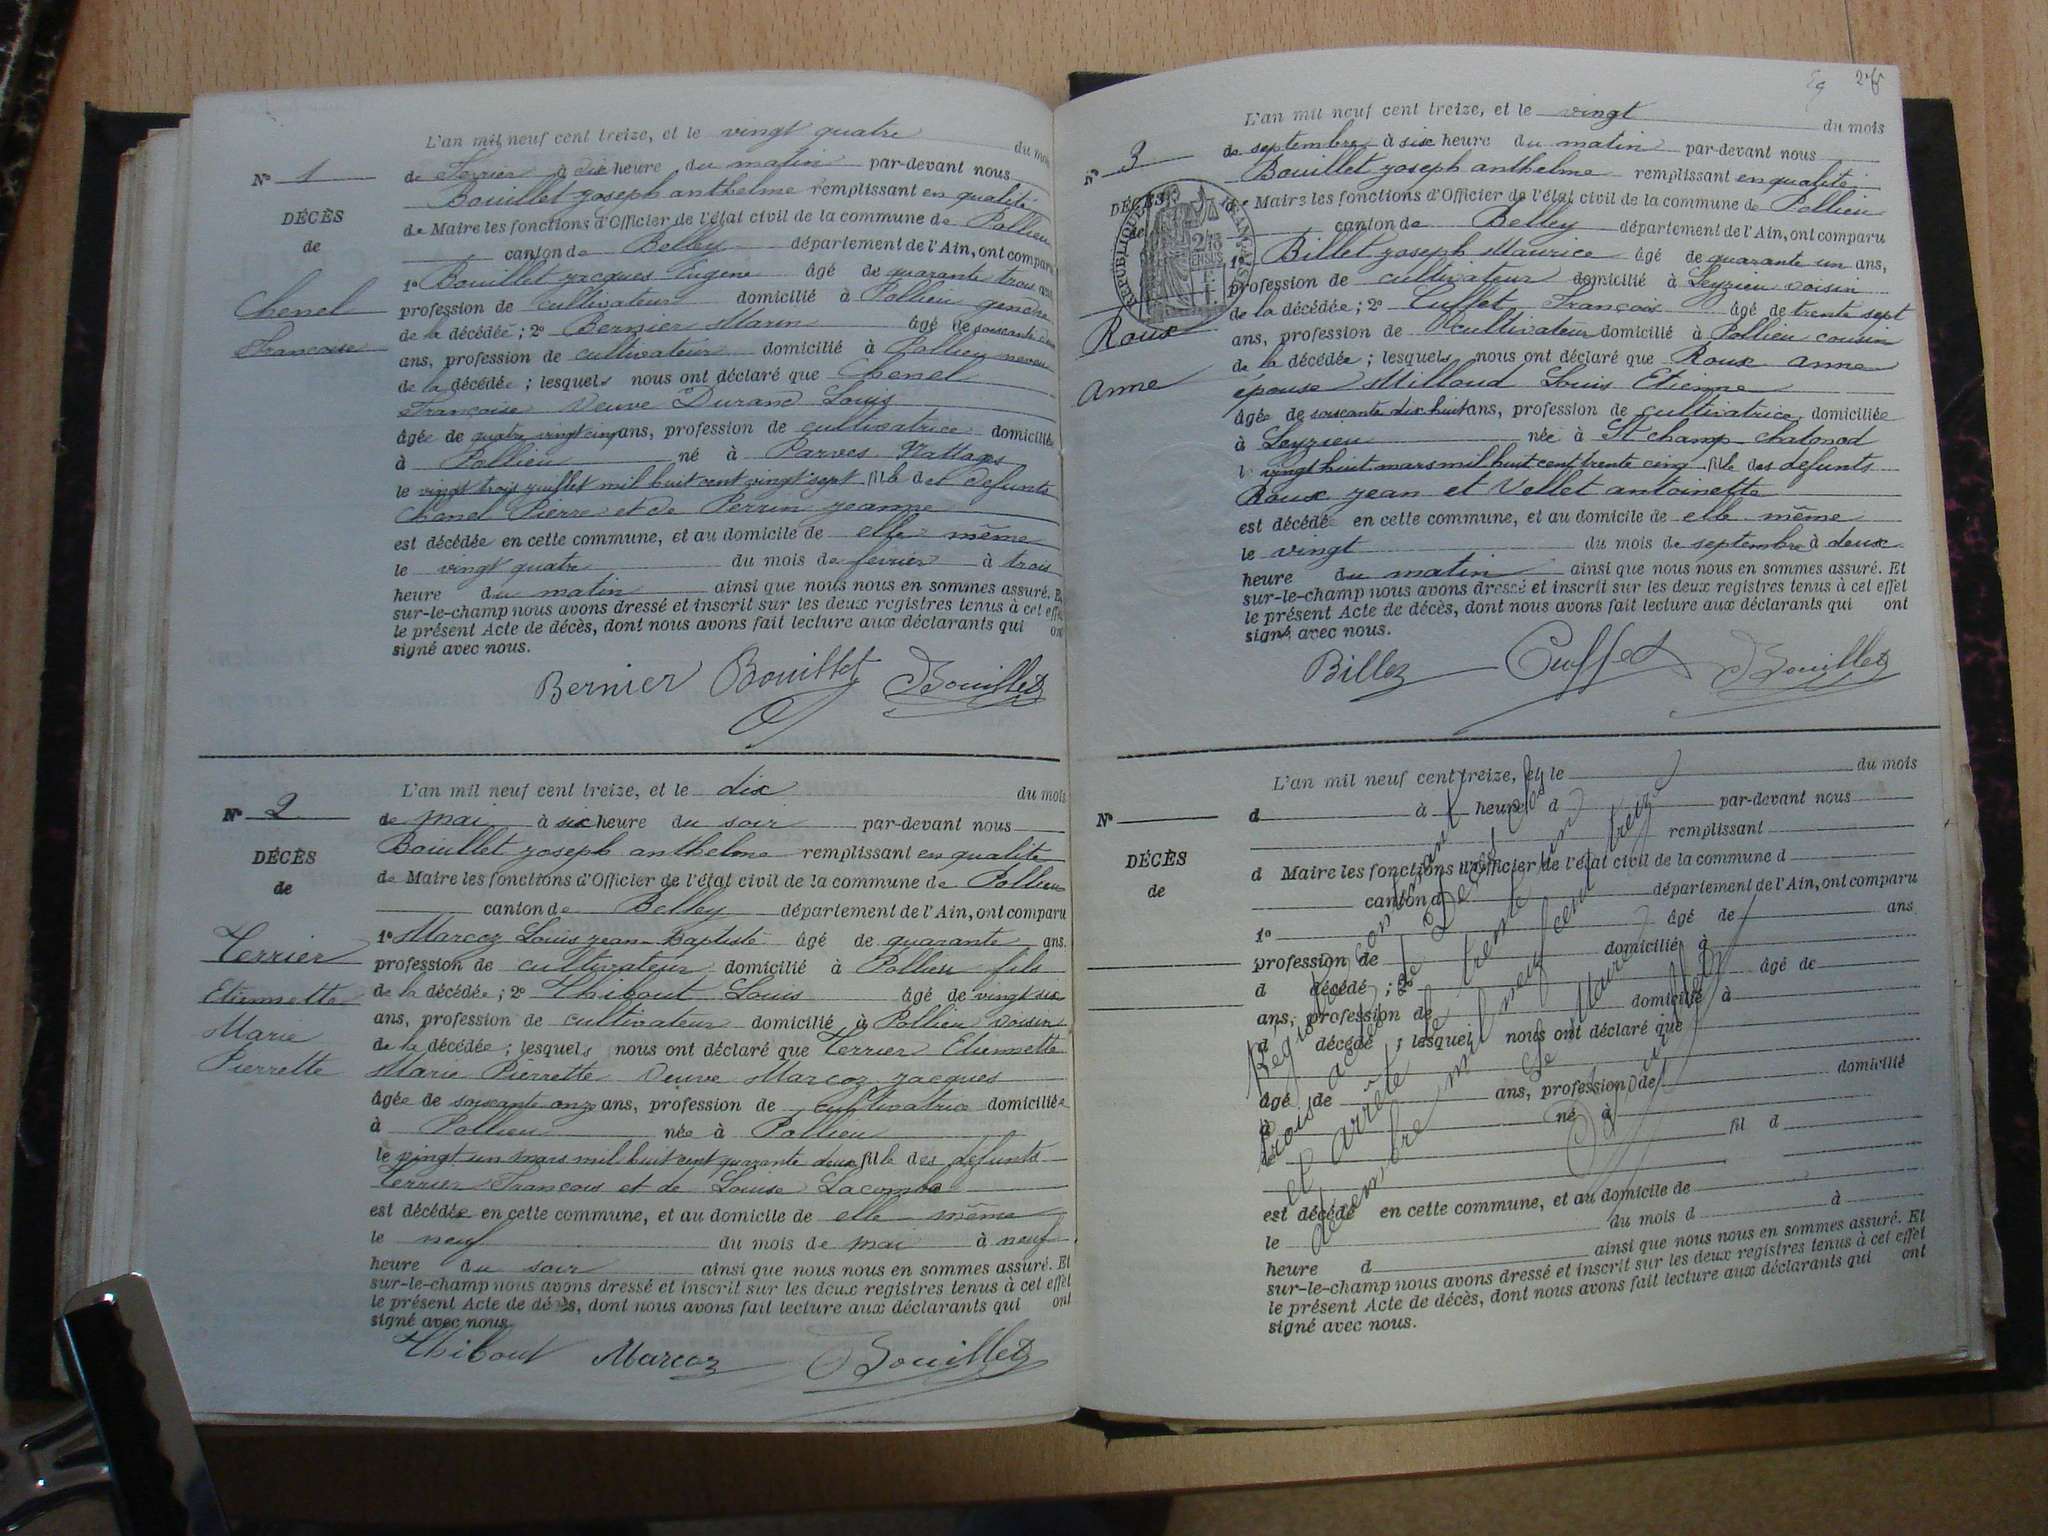 L'an mil neuf cent treize, et le vingt quatre du mois
N° 1
de fevrier à dix heure du matin par-devant nous
Bouillet Joseph anthelme remplissant en qualité
DÉCÈS
de Maire les fonctions d'Officier de l'état civil de la commune de Pollieu
de
canton de Belley département de l'Ain, ont comparu
1° Bouillet Jacques Eugene âgé de quarante trois ans
Chenel
profession de cultivateur domicilié à Pollieu gendre
de la décédée; 2° Bernier Marin âgé de soixante
Francoise
ans, profession de cultivateur domicilié à Pollieu neveu
de la décédée; lesquels nous ont déclaré que Chenel
Françoise Veuve Durand Louis
âgée de quatre vingt cinq ans, profession de cultivatrice domiciliée
à Pollieu né à Parves Nattages
le vingt trois juillet mil huit cent vingt sept fille des defunts
Chenel Pierre et de Perrin Jeanne
est décédée en cette commune, et au domicile de elle même
le vingt quatre du mois de fevrier à trois
heure du matin ainsi que nous nous en sommes assuré. Et
sur-le-champ nous avons dressé et inscrit sur les deux registres tenus à cet effet
le présent Acte de décès, dont nous avons fait lecture aux déclarants qui ont
signé avec nous.
Bernier Bouillet JBouillet
L'an mil neuf cent treize, et le dix du mois
N° 2
de mai à six heure du soir par-devant nous
Bouillet Joseph anthelme remplissant en qualité
DÉCÈS
de Maire les fonctions d'Officier de l'état civil de la commune de Pollieu
de
canton de Belley département de l'Ain, ont comparu
1° Marcoz Louis Jean-Baptiste âgé de quarante ans.
Terrier
profession de cultivateur domicilié à Pollieu fils
Etiennette
de la décédée; 2° Thibout Louis âgé de vingt six
ans, profession de cultivateur domicilié à Pollieu voisin
Marie
de la décédée; lesquels nous ont déclaré que Terrier Etiennette
Pierrette
Marie Pierrette Veuve Marcoz Jacques
âgée de soixante onze ans, profession de Cultivatrice domiciliée
à Pollieu née à Pollieu
le vingt un mars mil huit cent quarante deux fille des defunts
Terrier François et de Louise Lacombe
est décédée en cette commune, et au domicile de elle même
le neuf du mois de mai à neuf
heure du soir ainsi que nous nous en sommes assuré. Et
sur-le-champ nous avons dressé et inscrit sur les deux registres tenus à cet effet
le présent Acte de décès, dont nous avons fait lecture aux déclarants qui ont
signé avec nous.
Thibout Marcoz JBouillet
L'an mil neuf cent treize, et le vingt du mois
N° 3
de septembre à six heure du matin par-devant nous
Bouillet Joseph anthelme remplissant en qualité
DÉCÈS
de Maire les fonctions d'Officier de l'état civil de la commune de Pollieu
de
canton de Belley département de l'Ain, ont comparu
RÉPUBLIQUE FRANÇAISE
1° Billet Joseph Maurice âgé de quarante un ans,
profession de cultivateur domicilié à Leyzieu voisin
de la décédée; 2° Cuffet François âgé de trente sept
Roux
ans, profession de cultivateur domicilié à Pollieu cousin
de la décédée; lesquels nous ont déclaré que Roux anne
Anne
épouse Milloud Louis Etienne
âgée de soixante dix huit ans, profession de cultivatrice domiciliée
à Leyzieu née à St champ-chatonod
le vingt huit mars mil huit cent trente cinq fille des defunts
Roux Jean et Vellet antoinette
est décédé en cette commune, et au domicile de elle même
le vingt du mois de septembre à deux
heure du matin ainsi que nous nous en sommes assuré. Et
sur-le-champ nous avons dressé et inscrit sur les deux registres tenus à cet effet
le présent Acte de décès, dont nous avons fait lecture aux déclarants qui ont
signé avec nous.
Billez Cuffet JBouillet
L'an mil neuf cent treize, et le du mois
N°
d à heure d par-devant nous
remplissant
DÉCÈS
d Maire les fonctions d'Officier de l'état civil de la commune d
de
canton d département de l'Ain, ont comparu
1° âgé de ans
profession de domicilié à
d décédé; 2° âgé de
ans, profession de domicilié à
d décédé; lesquel nous ont déclaré que
âgé de ans, profession de domicilié
à né à
le fil d
est décédé en cette commune, et au domicile de
le du mois d à
heure d ainsi que nous nous en sommes assuré. Et
sur-le-champ nous avons dressé et inscrit sur les deux registres tenus à cet effet
le présent Acte de décès, dont nous avons fait lecture aux déclarants qui ont
signé avec nous.
Registre contenant
trois actes de Décès clos
et arrêté le trente un
décembre mil neuf cent treize
Le Maire
JBouillet